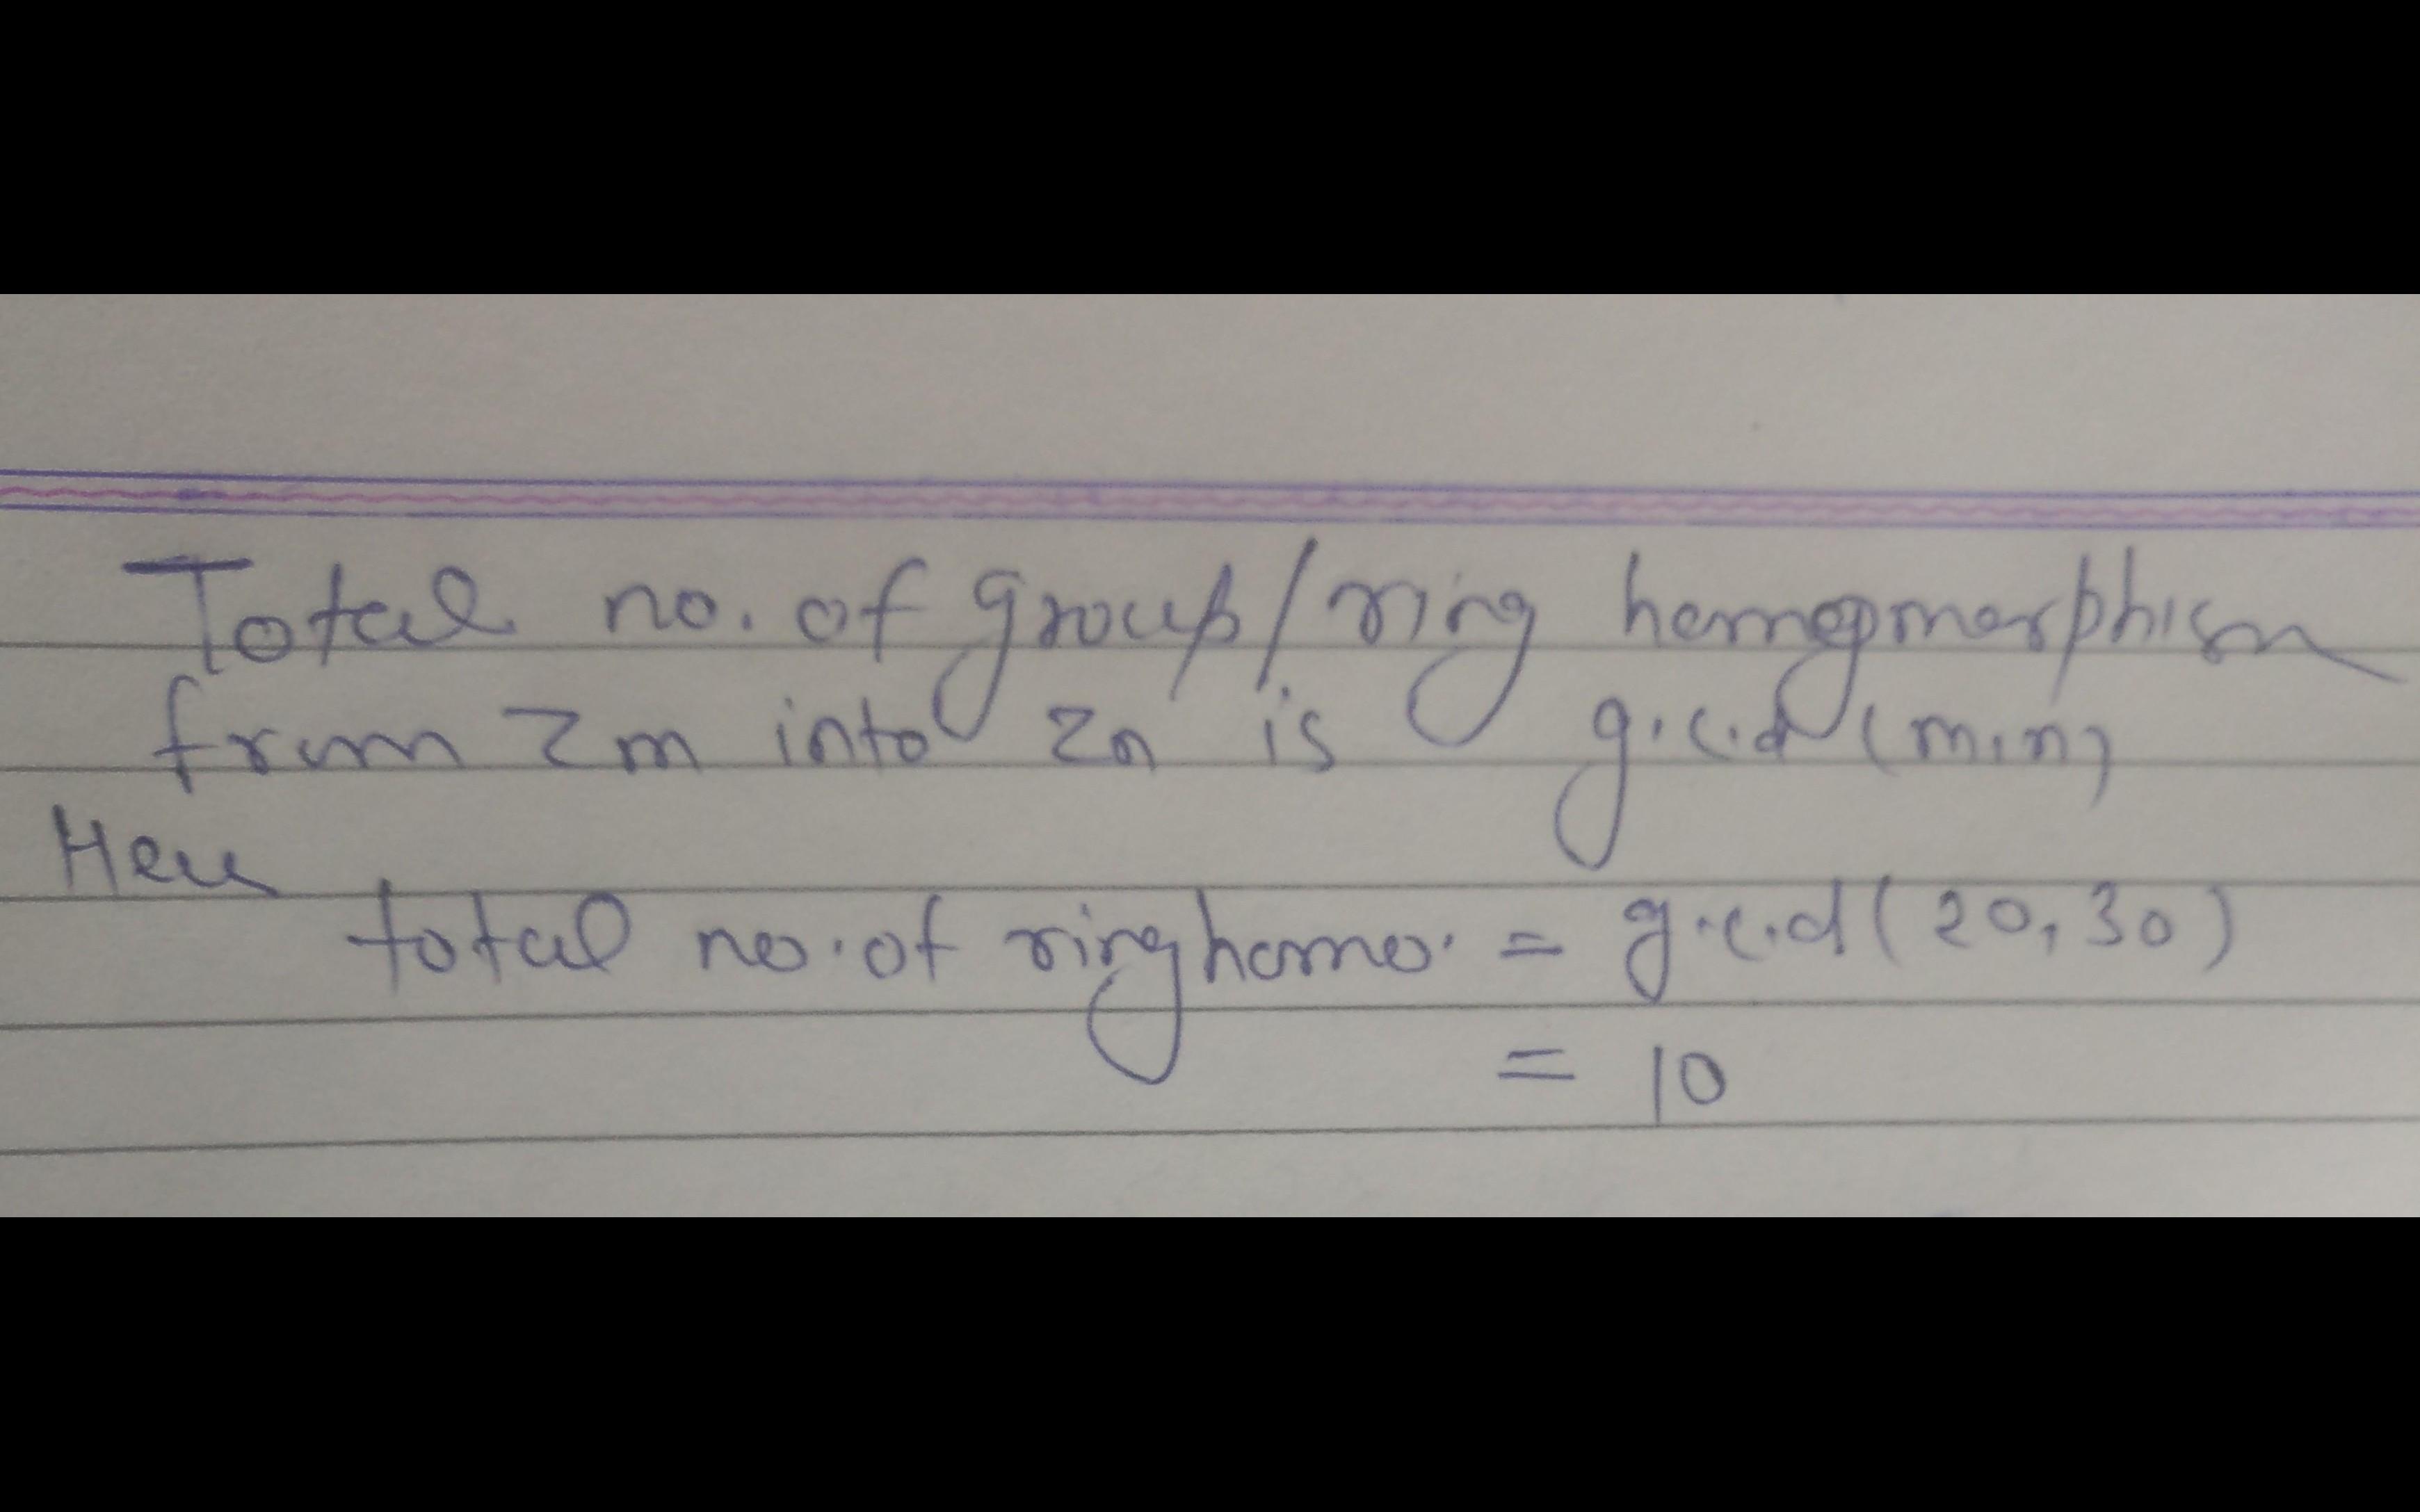 Total no. of group/ring homomorphism
from Zm into Zn is g.c.d (m,n)
Here
total no. of ring homo. = g.c.d (20, 30)
= 10